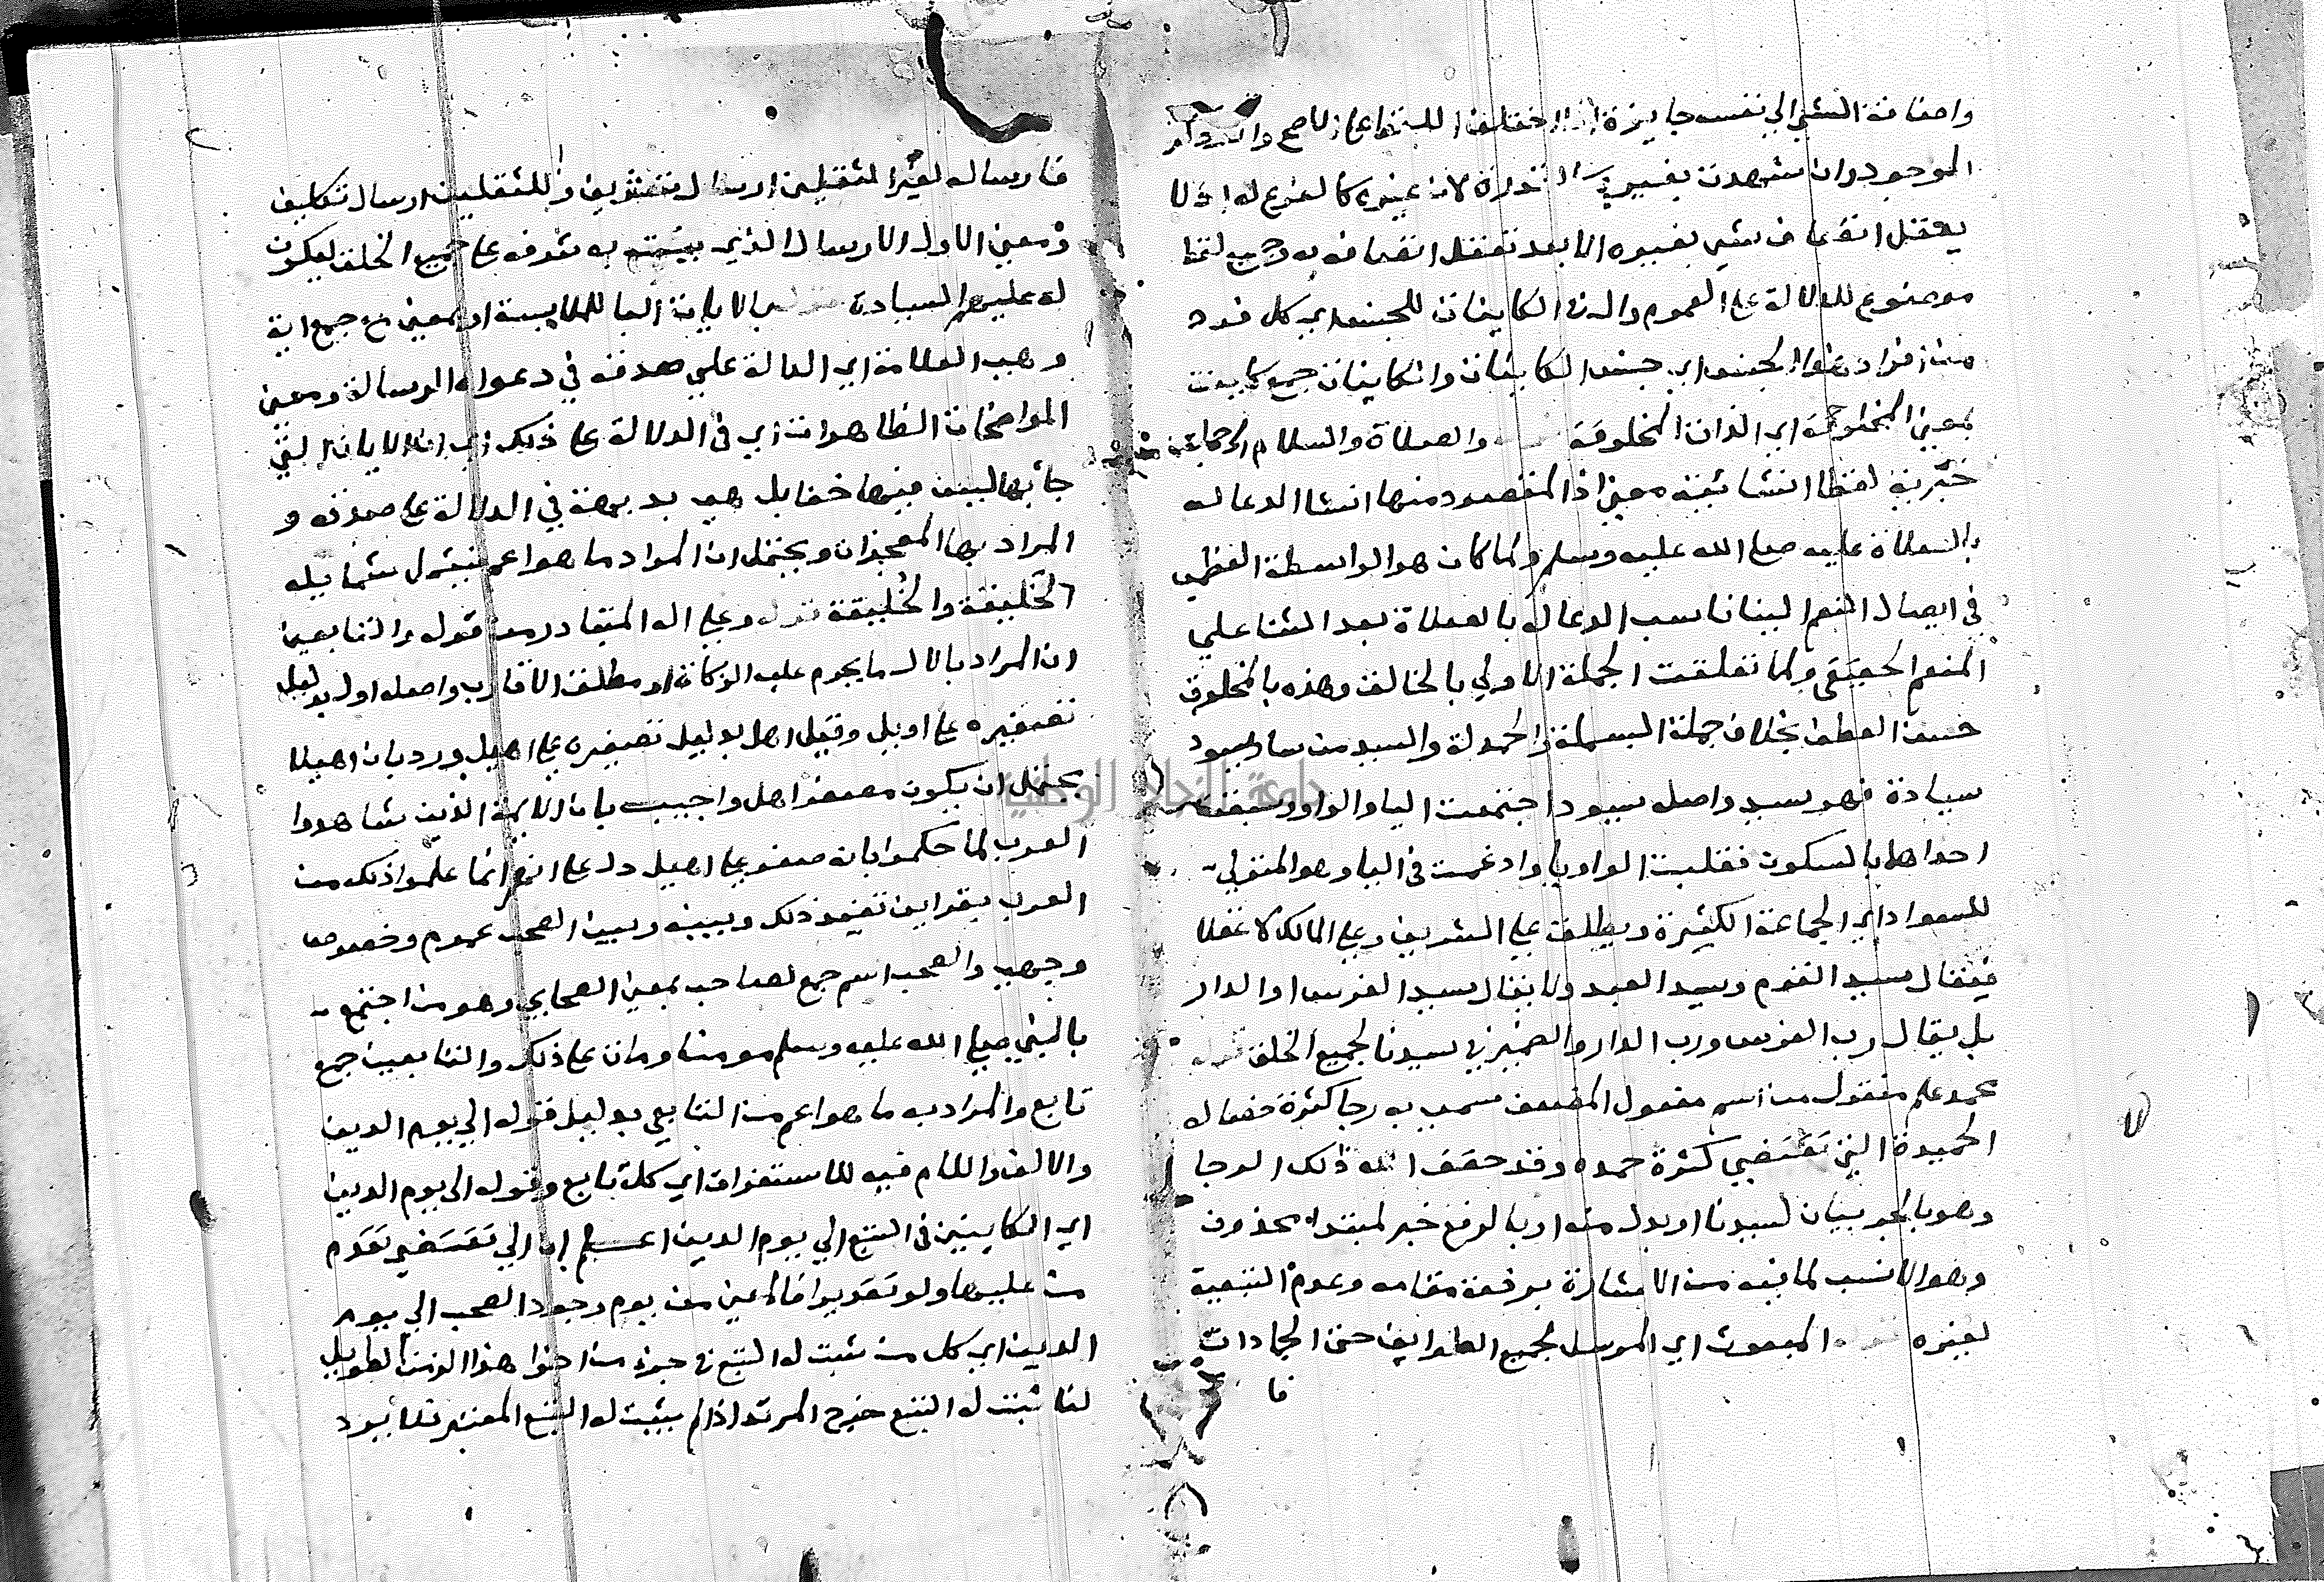 واضافة الشي الي نفسه جايزة اذا اختلف اللفظ علي الاصح والمراد
الموجود وان شهدت بغيره لان غيره كالفرع له اذ لا
يعقل اتصاف شي بغيره الا بعد تعقل اتصافه به وجميع لفظ
موضوع للدلالة علي العموم وال في الكاينات للجنس اي كل فرد
من افراد هذا الجنس اي جنس الكاينات والكاينات جمع كاينة
بمعني المخلوقة اي الذات المخلوقة والصلاة والسلام الخ جملة
خبرية لفظا انشائية معني اذ المقصود منها انشا الدعا له
بالصلاة عليه صلي الله عليه وسلم ولما كان هو الواسطة العظمي
في ايصال النعم لينا ناسب الدعا له بالصلاة بعد الثنا علي
المنعم الحقيقي ولما تعلقت الجملة الاولي بالخالق وهذه بالمخلوق
حسن العطف بخلاف جملة البسملة والحمدلة والسيد من ساد يسود
سيادة فهو سيد واصله سيود اجتمعت اليا والواو وسبقت
احداهما بالسكون فقلبت الواو يا وادغمت في اليا وهو المتولي
للسواد اي الجماعة الكثيرة ويطلق علي الشريف وعلي المالك لا عقلا
فيقال سيد القوم وسيد العبد ولا يقال سيد الفرس او الدار
بل يقال رب الفرس ورب الدار والضمير في سيدنا لجميع الخلق قوله
محمد علم منقول من اسم مفعول المضعف سمي به رجا كثرة خصاله
الحميدة التي تقتضي كثرة حمده وقد حقق الله ذلك الرجا
وهو بالجر بيان لسيدنا او بدل منه او بالرفع خبر لمبتدا محذوف
وهو الانسب لما فيه من الاشارة برفعة مقامه وعدم التبعية
لغيره قوله المبعوث اي المرسل لجميع الطوايف حتي الجمادات
فا
فارساله لغير الثقلين ارسال تشريف وللثقلين ارسال تكليف
ومعني الاول الارسال الذي يثبت به شرفه علي جميع الخلق ليكون
له عليهم السيادة بالايات البا للملابسة او بمعني مع جمع اية
وهي العلامة اي الدالة علي صدقه في دعواه الرسالة ومعني
الواضحات الظاهرات اي في الدلالة علي ذلك اي ان الايات التي
جا بها ليس فيها خفا بل هي بديهية في الدلالة علي صدقه و
المراد بها المعجزات ويحتمل ان المراد ما هو اعم فيشمل شمايله
الخليقة والخليقة قوله وعلي اله المتبادر من قوله والتابعين
ان المراد بالال ما يحرم عليه الزكاة او مطلق الاقارب واصله اول بدليل
تصغيره علي اويل وقيل اهل بدليل تصغيره علي اهيل ورد بان اهيلا
يحتمل ان يكون مصغر اهل واجيب بان الايمة الذين شاهدوا
العرب لما حكموا بانه مصغر علي اهيل دل علي انهم انما علموا ذلك من
العرب بقراين تفيد ذلك وبينه وبين الصحب عموم وخصوص
وجهي والصحب اسم جمع لصاحب بمعني الصحابي وهو من اجتمع
بالنبي صلي الله عليه وسلم مومنا ومات علي ذلك والتابعين جمع
تابع والمراد به ما هو اعم من التابعي بدليل قوله الي يوم الدين
والالف واللام فيه للاستغراق اي كل تابع وقوله الي يوم الدين
اي الكاينين في التبع الي يوم الدين اعلم ان الي تقتضي تقدم
من عليها ولو تقديرا فالمعني من يوم وجود الصحب الي يوم
الدين اي كل من ثبت له التبع في جزء من اجزا هذا الزمن الطويل
لما ثبت له التبع خرج المرتد اذ لم يثبت له التبع المعتبر فلا يرد